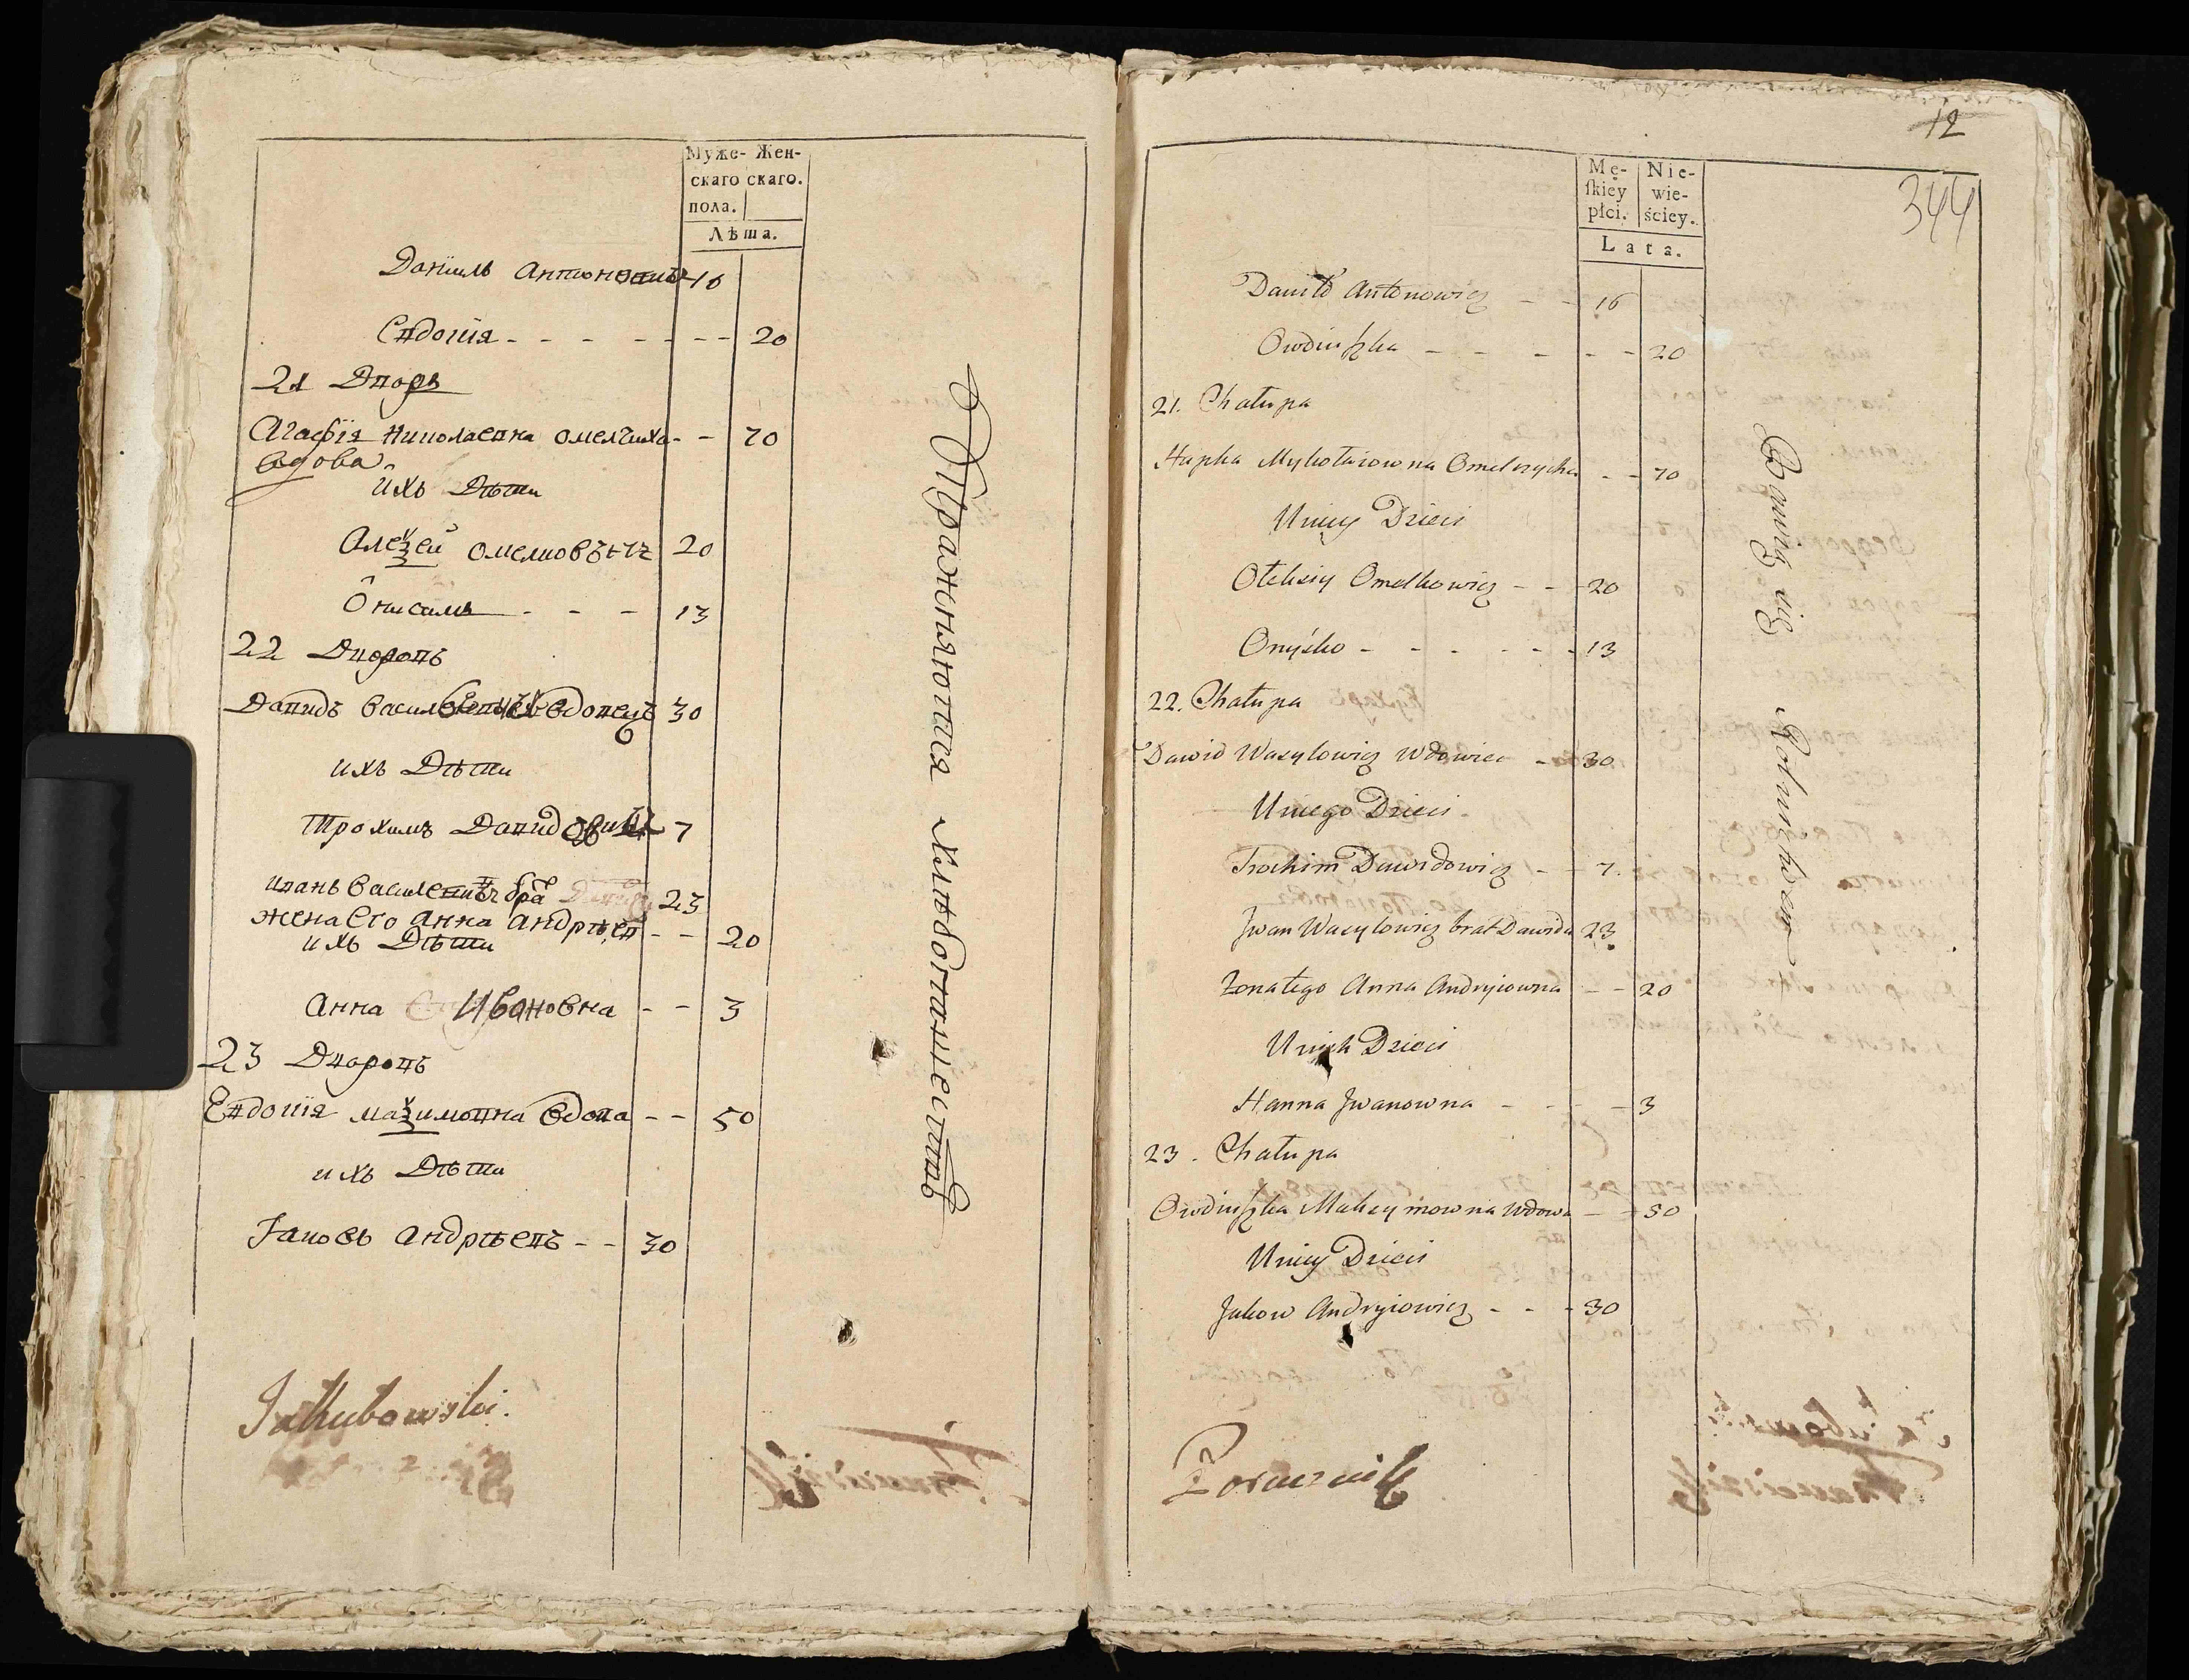 Муже- Жен-
скаго скаго.
пола.
Лѣта.
Данiилъ Антоновичъ 16
Евдокiя - - - - - - - 20
21 Дворъ
Агафïя Николаевна Омелчиха - - 70
вдова
ихъ Дѣти
Алеѯей Омелковичъ 20
Онисимъ - - - 13
22 Дворовъ
Давидъ Васильевичъ вдовецъ 30
ихъ Дѣти
Трохимъ Давидовичъ 7
Иванъ Василевичъ бра 23
жена его Анна Андрѣев - - 20
ихъ Дѣти
Анна Ивановна - - 3
23 Дворовъ
Евдокïя Маѯимовна вдова - - 50
ихъ Дѣти
Iаковъ Андрѣевъ - - 30
Упражняются хлебопашествомъ
Jakubowski.
12
344
Mę- Nie-
skiey wie-
płci. ściey.
Lata.
Daniło Antonowicz - - 16
Owdiuszka - - - - - 20
21. Chałupa
Hapka Mykołaiowna Omelczycha - - 70
U niey Dzieci
Ołeksiy Omelkowicz - - - 20
Onyśko - - - - - - 13
22. Chałupa
Dawid Wasylowicz Wdowiec - 30
U niego Dzieci
Trochim Dawidowicz - - 7.
Jwan Wasylowicz brat Dawida 23
Żona tego Anna Andryiowna - - 20
U nich Dzieci
Hanna Jwanowna - - - 3
23. Chałupa
Owdiuszka Maksymowna Wdowa - - 50
U niey Dzieci
Jakow Andryiowicz - - - 30
Bawią się Rolnictwem
Porucznik